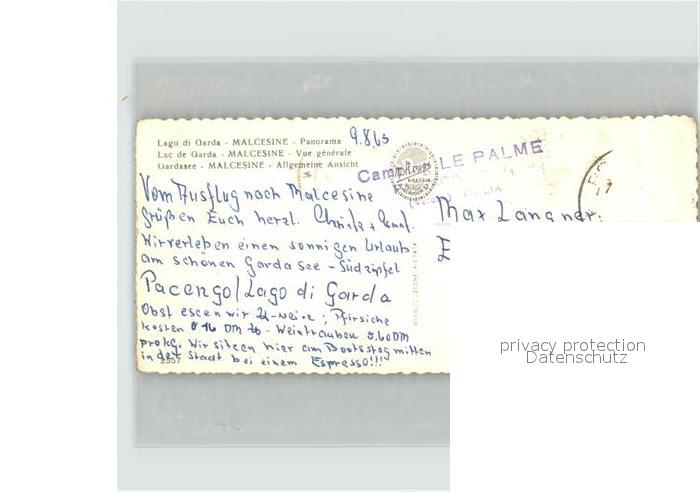 Lago di Garda - MALCESINE - Panorama
Lac de Garda - MALCESINE - Vue générale
Gardasee - MALCESINE - Allgemeine Ansicht
9.8.63
LE PALME
Vom Ausflug nach Malcesine
grüßen Euch herzl.
Wir verleben einen sonnigen Urlaub
am schönen Gardasee - Südzipfel
Pacengo/Lago di Garda
Obst essen wir ; Pfirsiche
kosten DM - Weintrauben 0.60 DM
pro kg. Wir sitzen hier am Bootssteg mitten
in der Stadt bei einem Espresso!!!
2557
Max Langner
privacy protection
Datenschutz